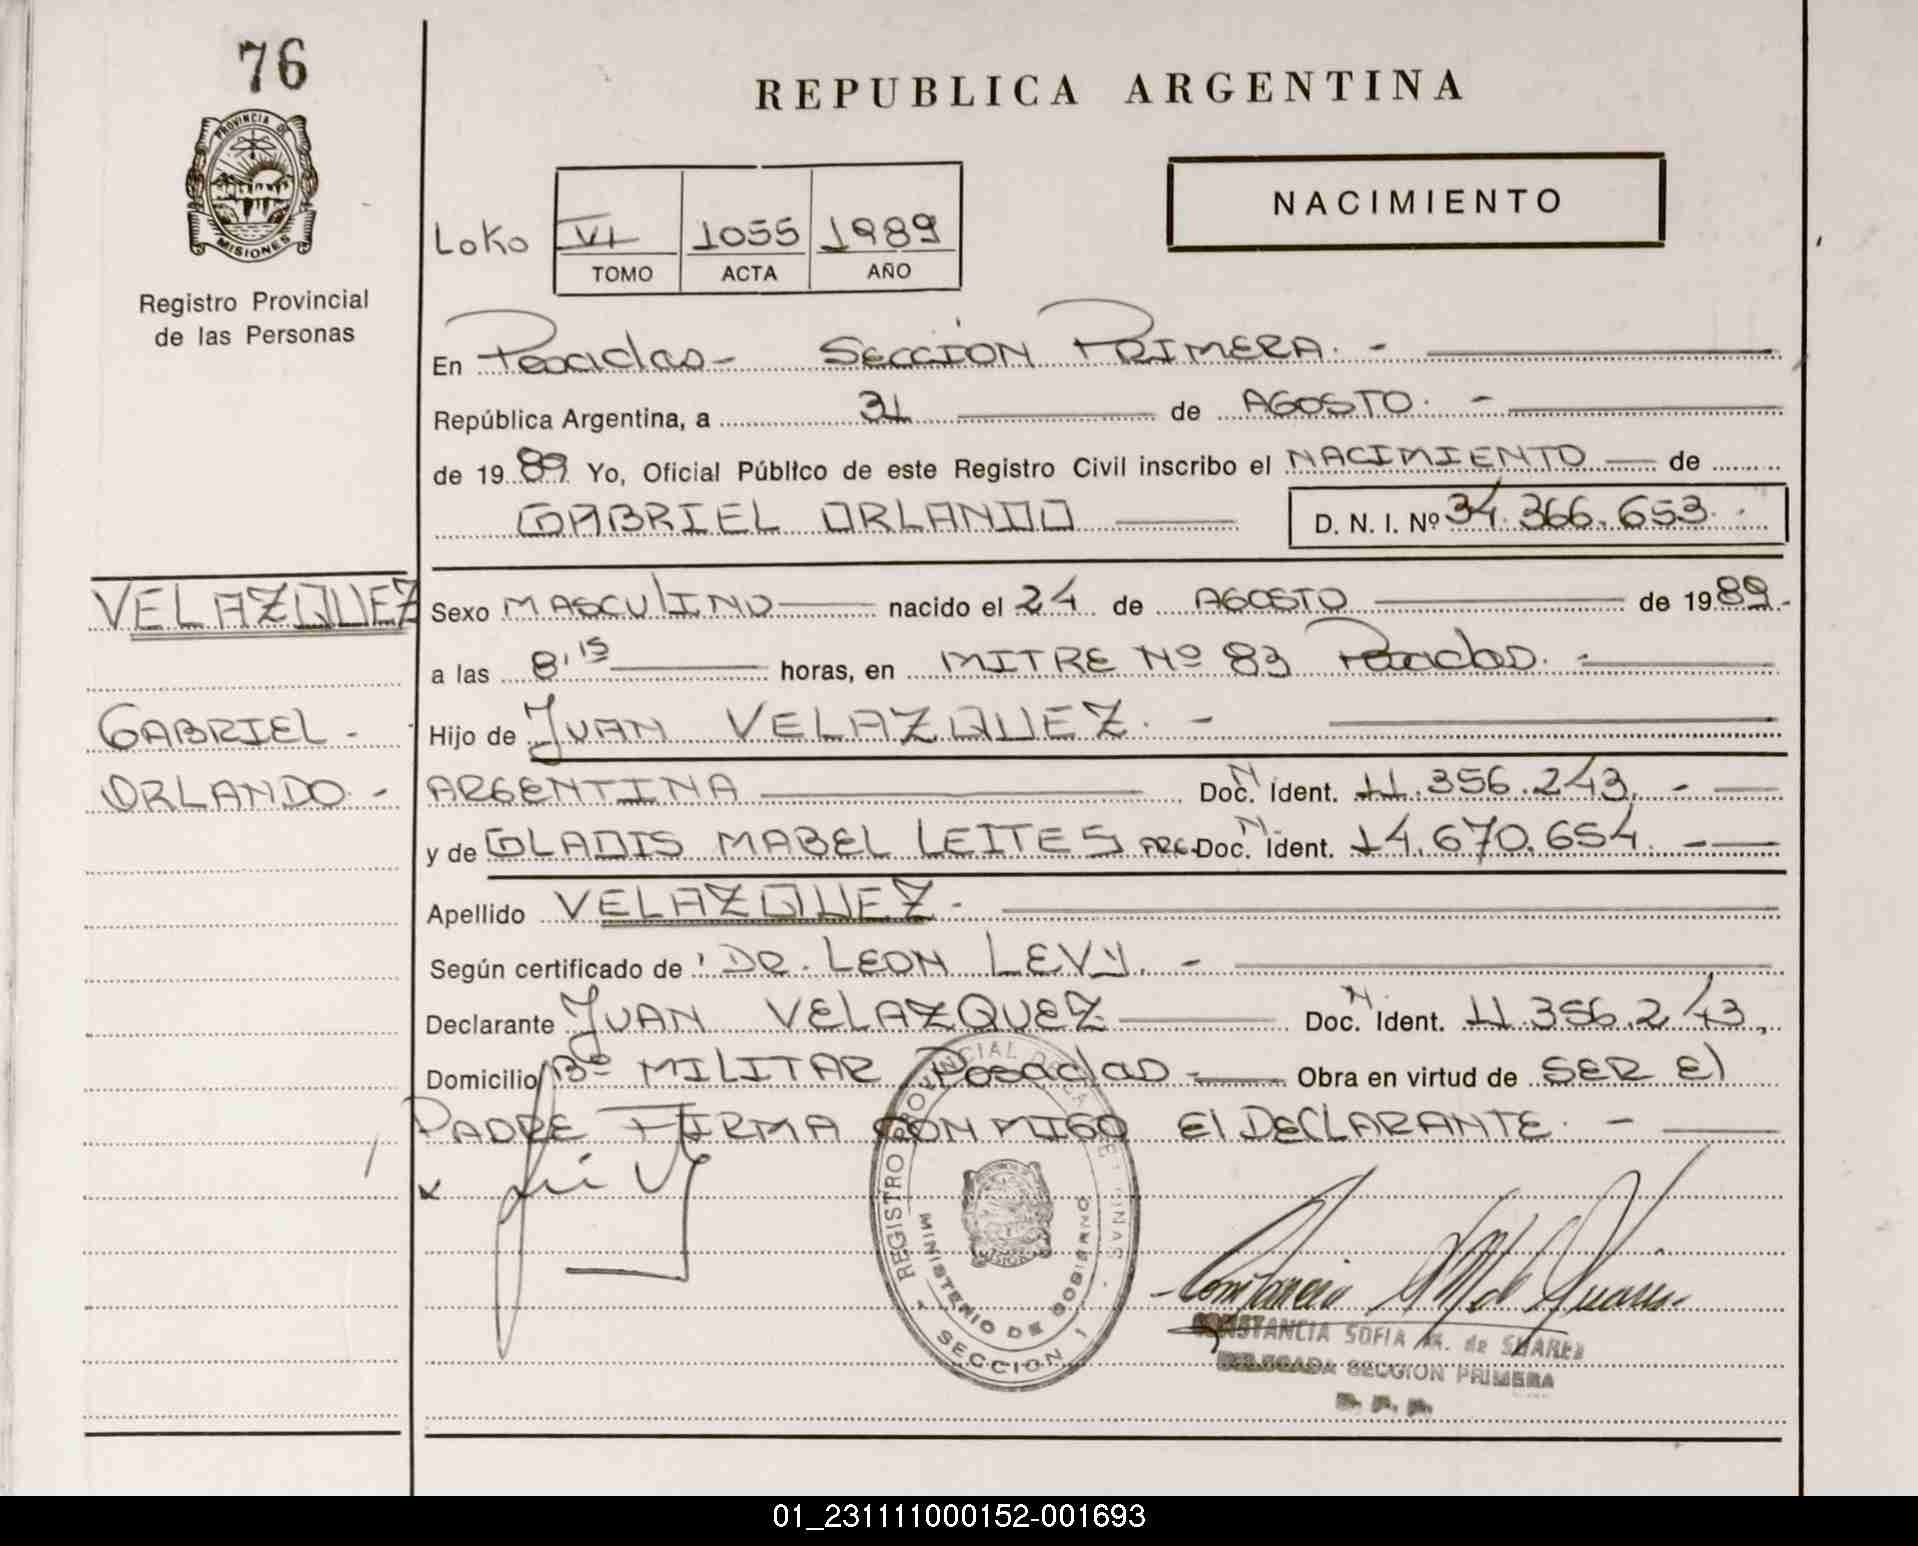 76
PROVINCIA DE
MISIONES
Registro Provincial
de las Personas
REPUBLICA ARGENTINA
NACIMIENTO
Loko VI 1055 1989
TOMO ACTA AÑO
En Posadas- SECCIÓN PRIMERA. -
República Argentina, a 31 de AGOSTO. -
de 1989 Yo, Oficial Público de este Registro Civil inscribo el NACIMIENTO de
GABRIEL ORLANDO D. N. I. Nº 34.366.653.
VELAZQUEZ
GABRIEL -
ORLANDO. -
Sexo MASCULINO nacido el 24 de AGOSTO de 1989.-
a las 8'15 horas, en MITRE Nº 83 Posadas. -
Hijo de JUAN VELAZQUEZ. -
ARGENTINA Doc. N Ident. 11.356.243. -
y de GLADIS MABEL LEITES ARG. Doc. N. Ident. 14.670.654. -
Apellido VELAZQUEZ -
Según certificado de DR. LEON LEVY. -
Declarante JUAN VELAZQUEZ Doc. N Ident. 11.356.243,
Domicilio Bº MILITAR Posadas - Obra en virtud de SER El
PADRE FIRMA CONMIGO El DECLARANTE. -
REGISTRO PROVINCIAL DE LAS PERSONAS
MINISTERIO DE GOBIERNO
SECCION 1
CONSTANCIA SOFIA M. de SUAREZ
DELEGADA SECCION PRIMERA
R. P. P.
01_231111000152-001693